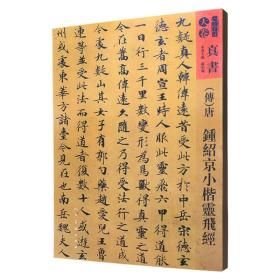 大卷
真書
（傳）唐 鍾紹京小楷靈飛經
九疑真人韓偉遠昔受此方於中岳宋德玄
德玄者周宣王時人服此靈飛六甲得道能
一日行三千里數變形為鳥獸得真靈之道
今在嵩高偉遠久隨之乃得受法行之道成
今處九疑山其女子有郭芍藥趙愛兒王魯
連等並受此法而得道者復數十人或遊玄
州或處東華方諸臺今見在也南岳魏夫人